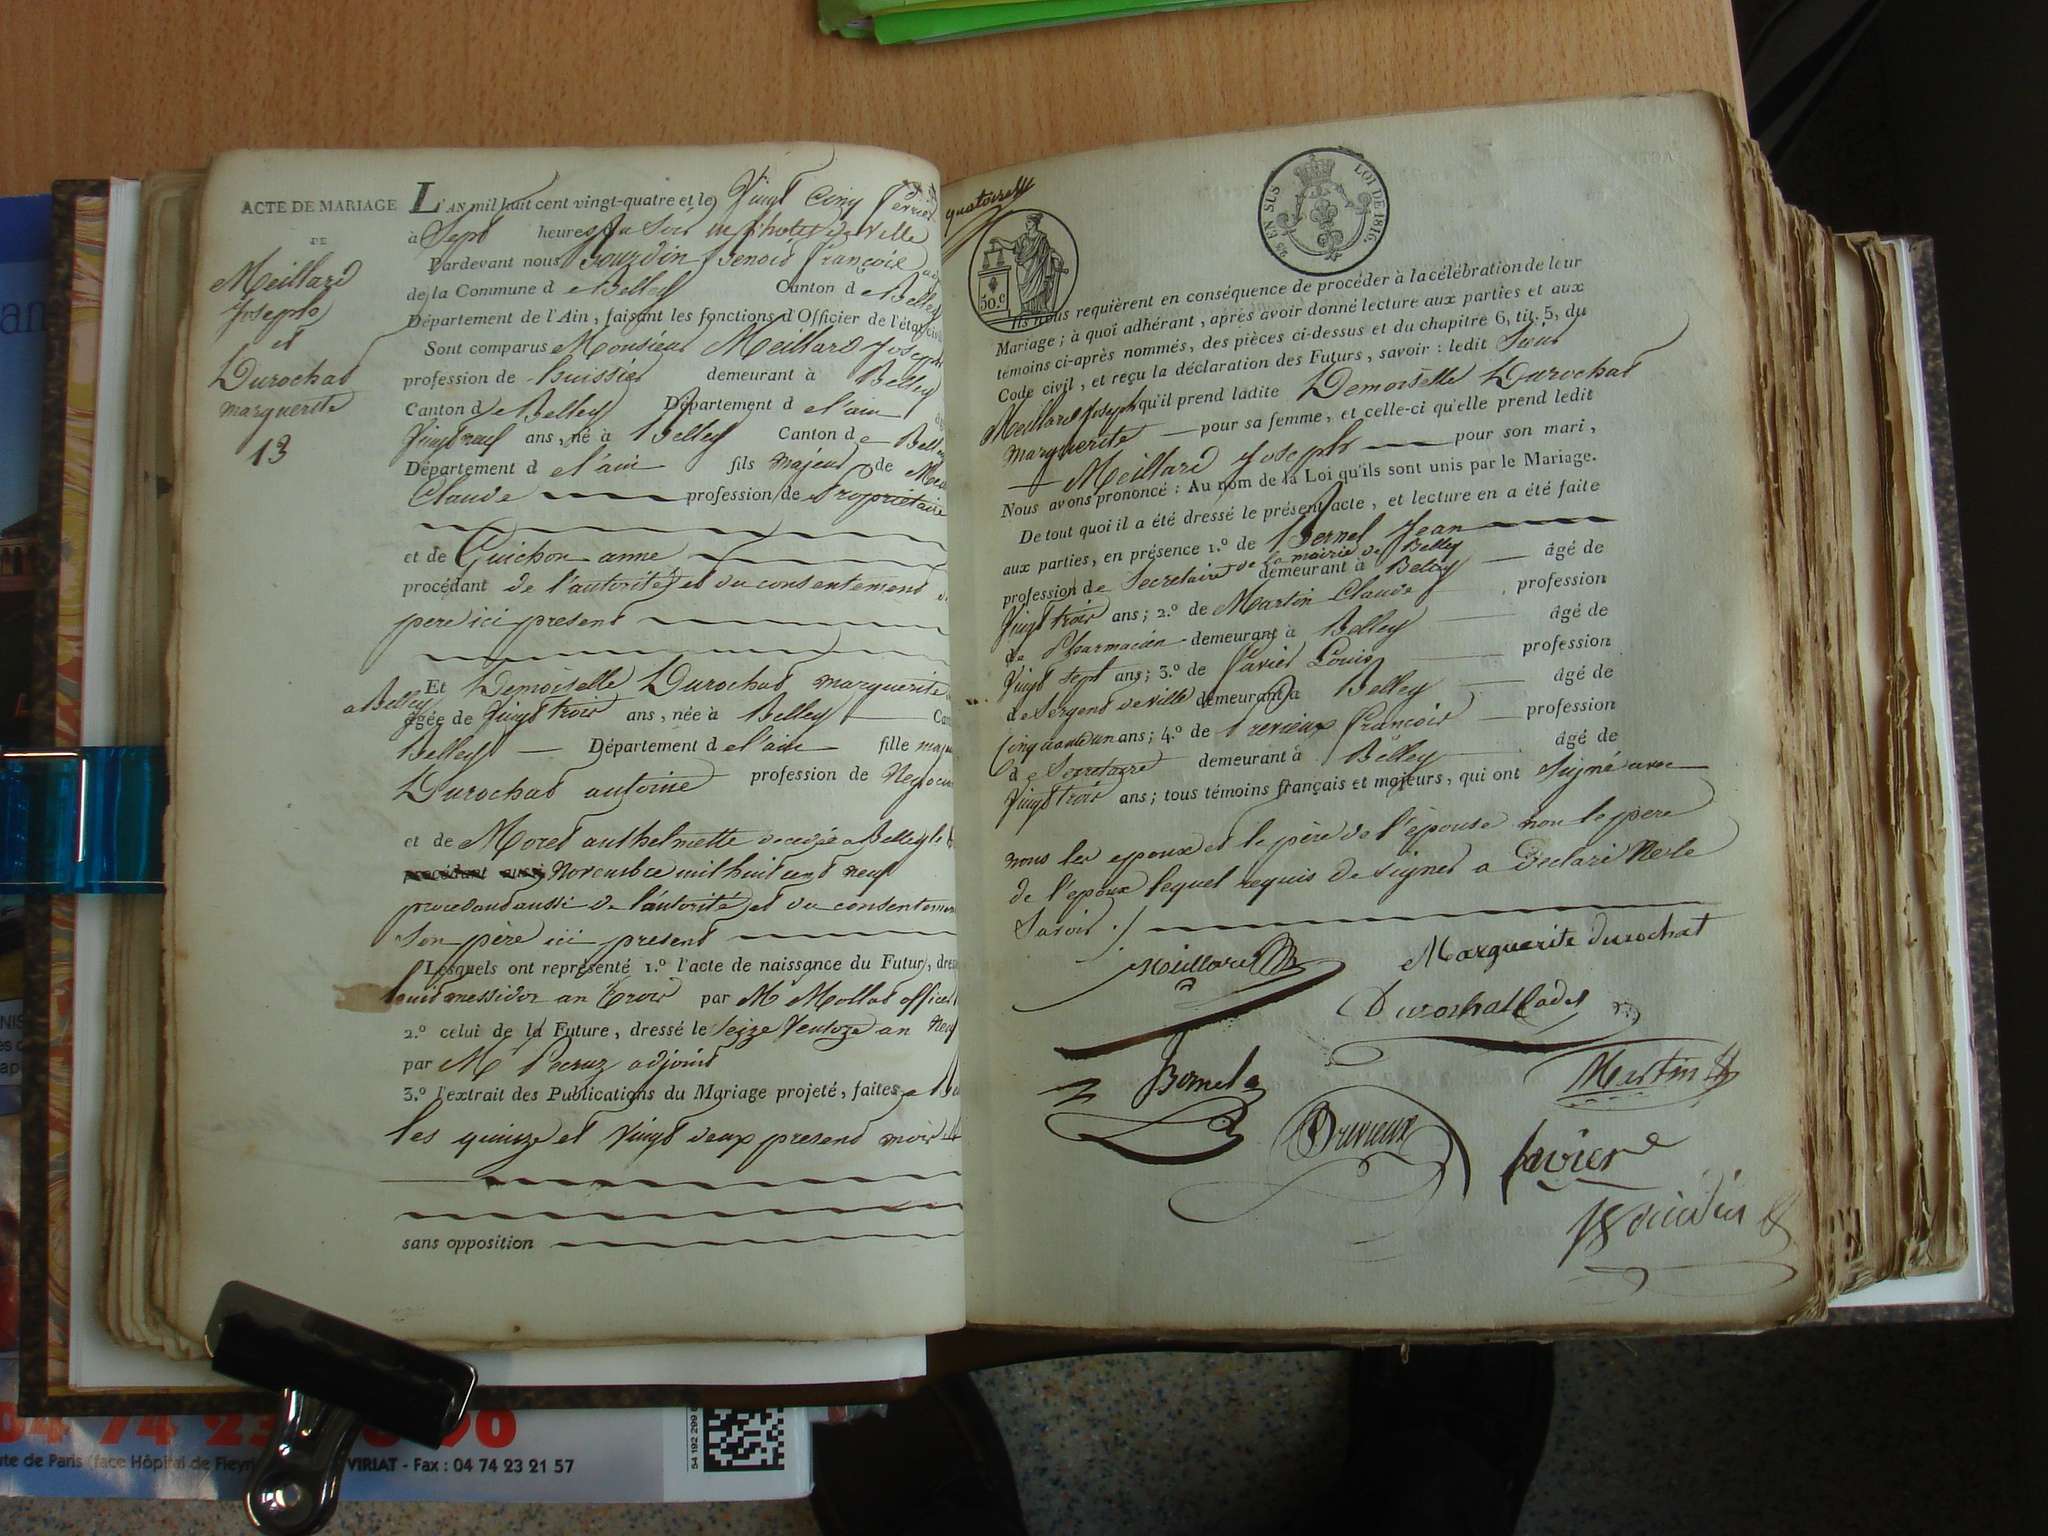 ACTE DE MARIAGE
DE
Meillard
Joseph
et
Durochat
marguerite
13
L'AN mil huit cent vingt-quatre et le Vingt Cinq fevrier
à Sept heures du Soir en l'hotel de Ville
Pardevant nous Gourdin benoid françois
de la Commune de Belley Canton de Belley
Département de l'Ain, faisant les fonctions d'Officier de l'état civil
Sont comparus Monsieur Meillard Joseph
profession de huissier demeurant à Belley
Canton de Belley Département de l'ain
Vingt neuf ans, né à Belley Canton de Belley
Département de l'ain fils majeur de
Claude profession de Propriétaire
et de Guichon anne
procédant de l'autorité et du consentement
pere ici present
Et Demoiselle Durochat marguerite
a Belley
agée de Vingt trois ans, née à Belley
Belley Département de l'ain fille
Durochat antoine profession de
et de Moret anthelmette decedée a Belley le
procédant aussi Novembre mil huit cent neuf
procedant aussi de l'autorité et du consentement
son père ici present
Lesquels ont représenté 1.º l'acte de naissance du Futur,
huit messidor an trois par Mr Mollat
2.º celui de la Future, dressé le seize Ventoze an neuf
par Mr Pecruz adjoint
3.º l'extrait des Publications du Mariage projeté, faites
les quinze et Vingt deux present mois
sans opposition
quatorze
50.c
28 EN SUS
LOI DE 1816.
Ils nous requièrent en conséquence de procéder à la célébration de leur
Mariage; à quoi adhérant, après avoir donné lecture aux parties et aux
témoins ci-après nommés, des pièces ci-dessus et du chapitre 6, tit. 5, du
Code civil, et reçu la déclaration des Futurs, savoir: ledit Sieur
Meillard Joseph qu'il prend ladite Demoiselle Durochat
marguerite pour sa femme, et celle-ci qu'elle prend ledit
Meillard Joseph pour son mari,
Nous avons prononcé: Au nom de la Loi qu'ils sont unis par le Mariage.
De tout quoi il a été dressé le présent acte, et lecture en a été faite
aux parties, en présence 1.º de Bernel Jean
profession de Secretaire de la mairie de Belley demeurant à Belley âgé de
Vingt trois ans; 2.º de Martin Claude, profession
de Pharmacien demeurant à Belley âgé de
Vingt sept ans; 3.º de Louis profession
de Sergent de ville demeurant à Belley âgé de
Cinquante un ans; 4.º de Previeux francois profession
de Secretaire demeurant à Belley âgé de
Vingt trois ans; tous témoins français et majeurs, qui ont signé avec
nous les epoux et le père de l'épouse non le pere
de l'epoux lequel requis de signer a Declaré Ne le
Savoir ./
Meillard
Marguerite durochat
Durochat
Martin